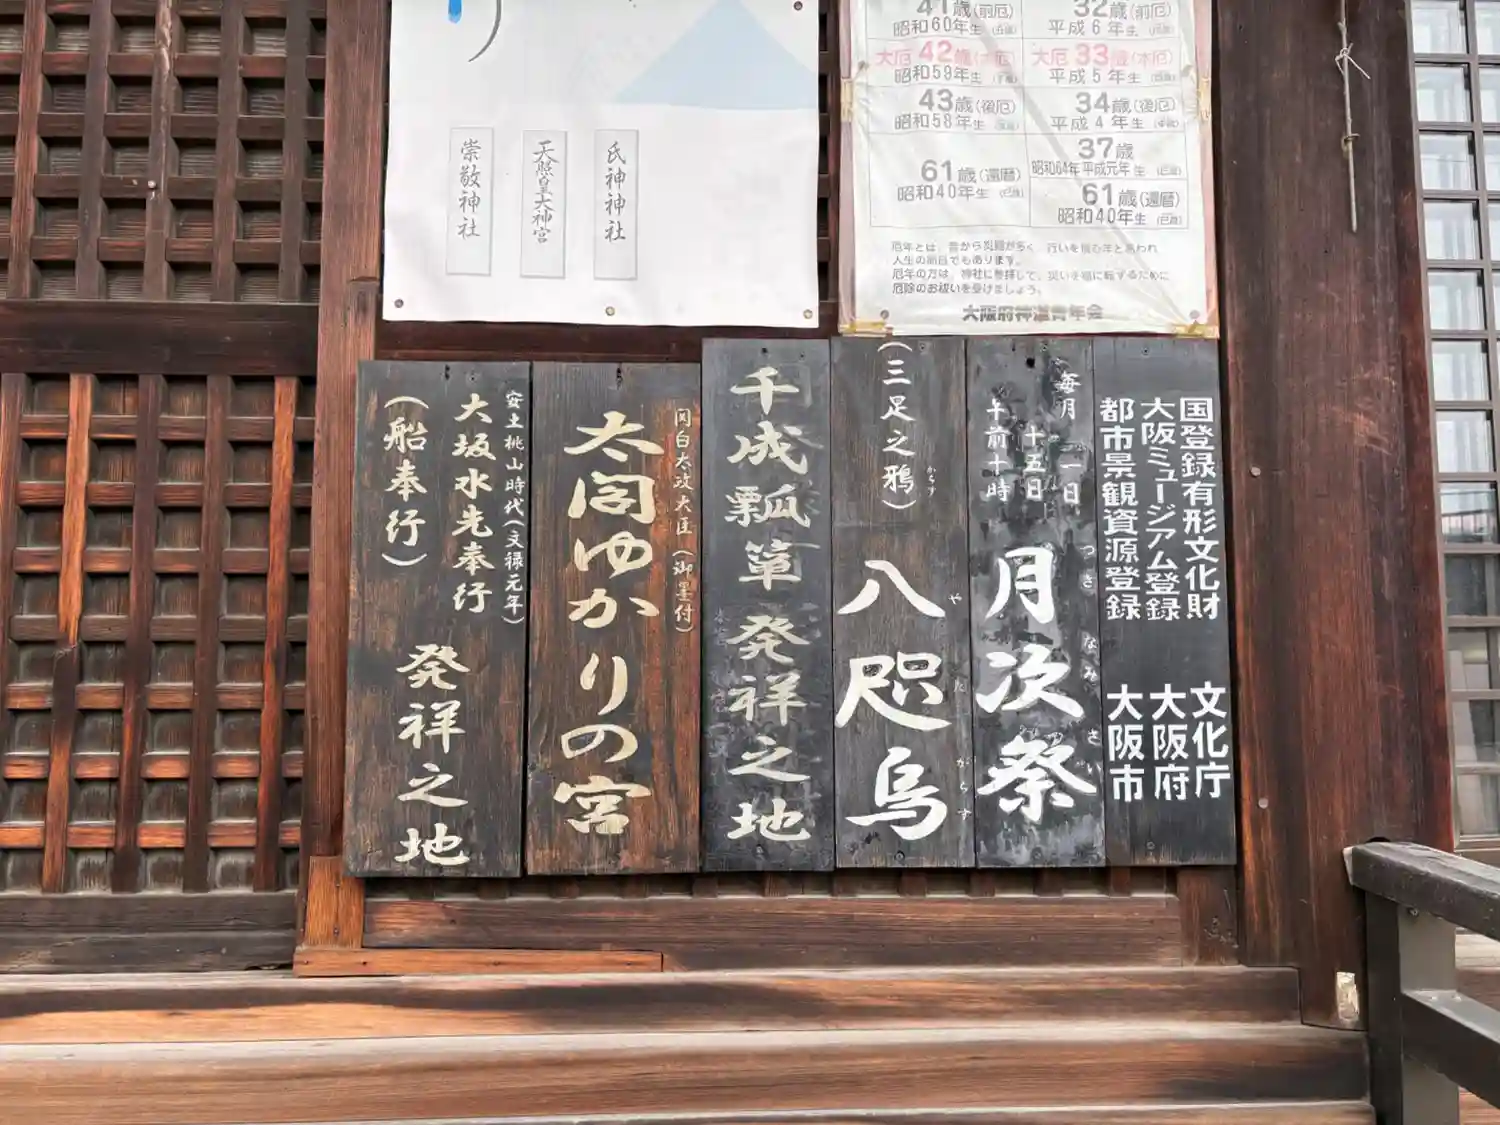 氏神神社
天照皇大神宮
崇敬神社
41歳(前厄)
昭和60年生
32歳(前厄)
平成6年生
大厄 42歳(本厄)
昭和59年生
大厄 33歳(本厄)
平成5年生
43歳(後厄)
昭和58年生
34歳(後厄)
平成4年生
37歳
昭和64年平成元年生
61歳(還暦)
昭和40年生
61歳(還暦)
昭和40年生
人生の節目でもあります。
厄除のお祓いを受けましょう。
大阪府神道青年会
国登録有形文化財 文化庁
大阪ミュージアム登録 大阪府
都市景観資源登録 大阪市
毎月 一日
十五日
午前十時
月次祭
つきなみさい
(三足之鴉)
からす
八咫烏
やたがらす
千成瓢箪発祥之地
関白太政大臣(御墨付)
太閤ゆかりの宮
安土桃山時代(文禄元年)
大坂水先奉行
(船奉行)
発祥之地